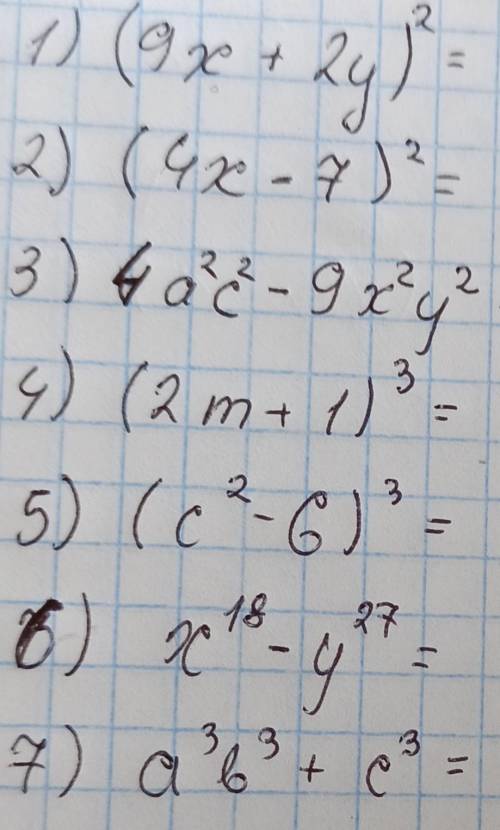 1) (9x + 2y)² =
2) (4x - 7)² =
3) 4a²c² - 9x²y²
4) (2m + 1)³ =
5) (c² - 6)³ =
6) x¹⁸ - y²⁷ =
7) a³b³ + c³ =